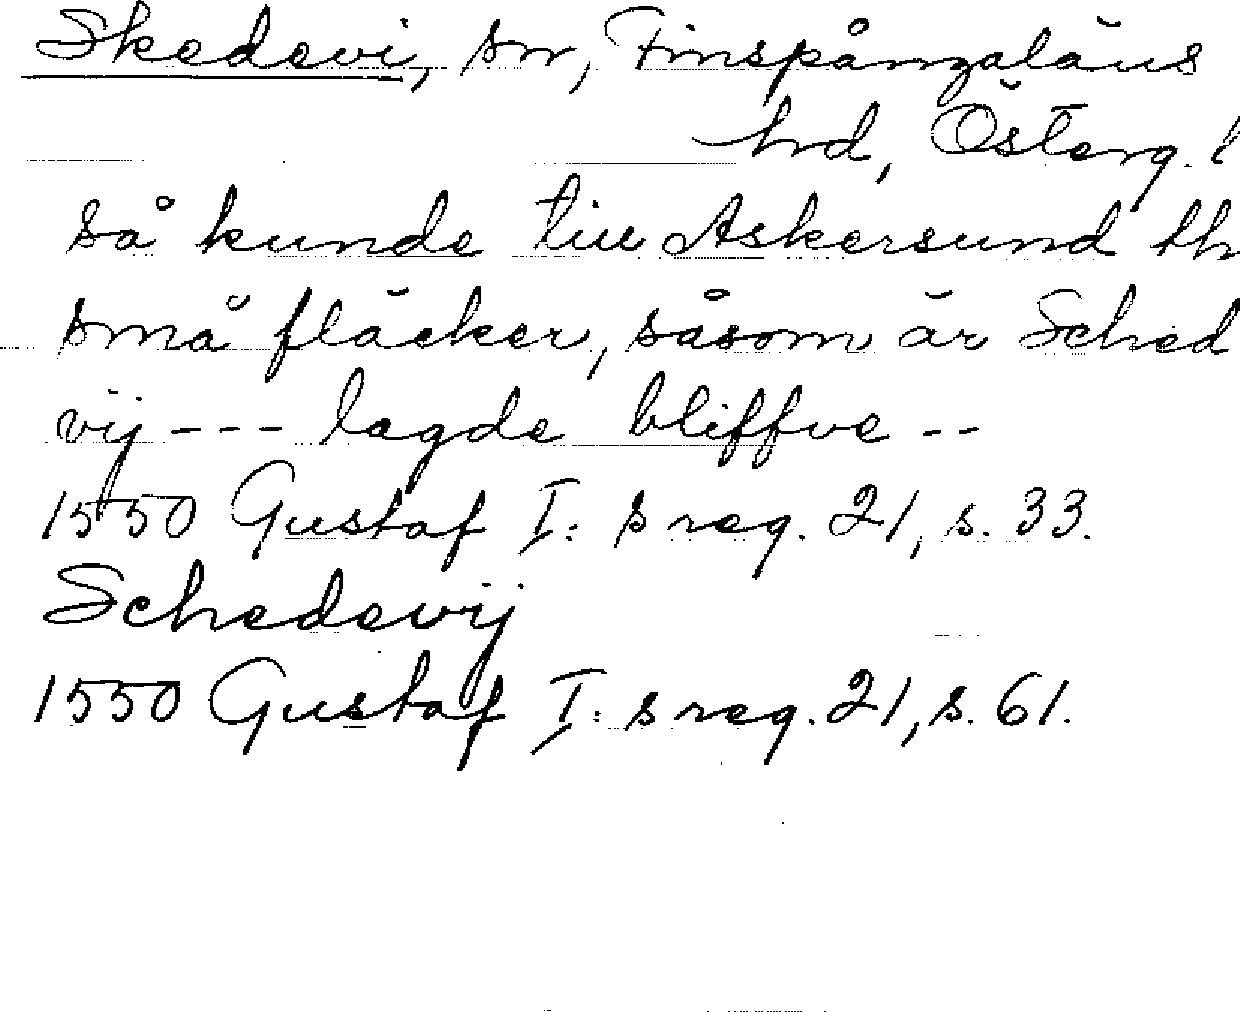 Skedevi, sn, Finspångaläns
hrd, Österg. l
så kunde till Askersund th
små fläcker, såsom är Sched
vij --- lagde bliffve --
1550 Gustaf I: s reg. 21, s. 33.
Schedevij
1550 Gustaf I: s reg. 21, s. 61.